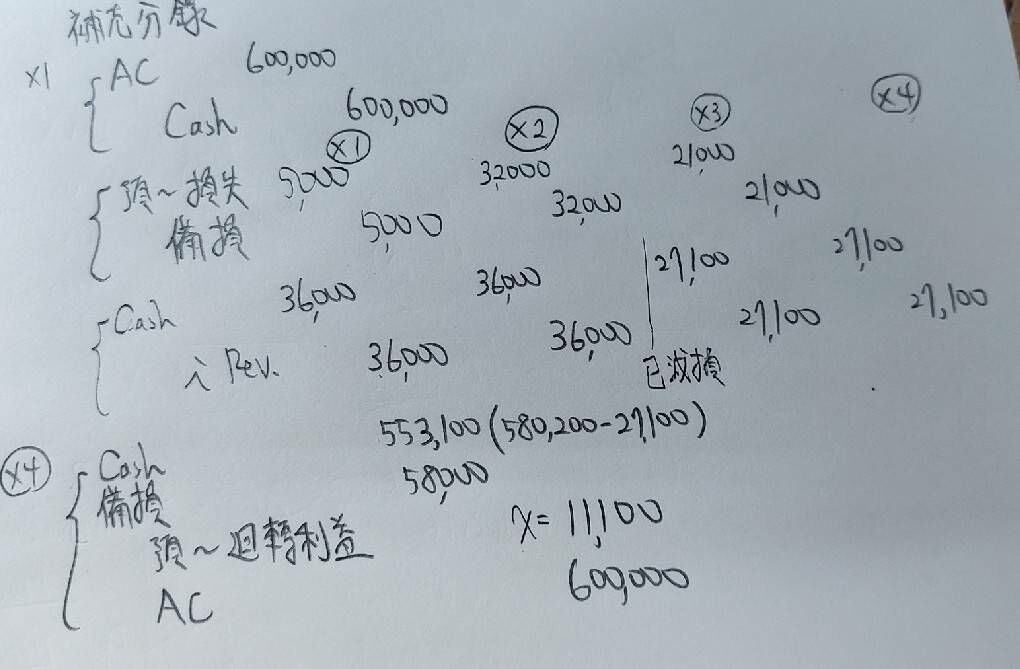 補充分錄
X1 AC 600,000
Cash 600,000
X1 X2 X3 X4
預~損失 5,000 32,000 21,000
備損 5,000 32,000 21,000
Cash 36,000 36,000 27,100 27,100
i Rev. 36,000 36,000 27,100 27,100
已減損
553,100(580,200-27,100)
X4 Cash
58,000
備損
預~迴轉利益 X=11,100
AC 600,000